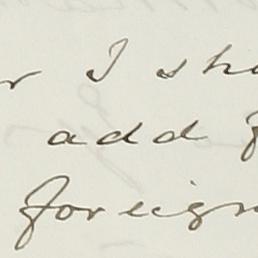 I sh
add f
foreign